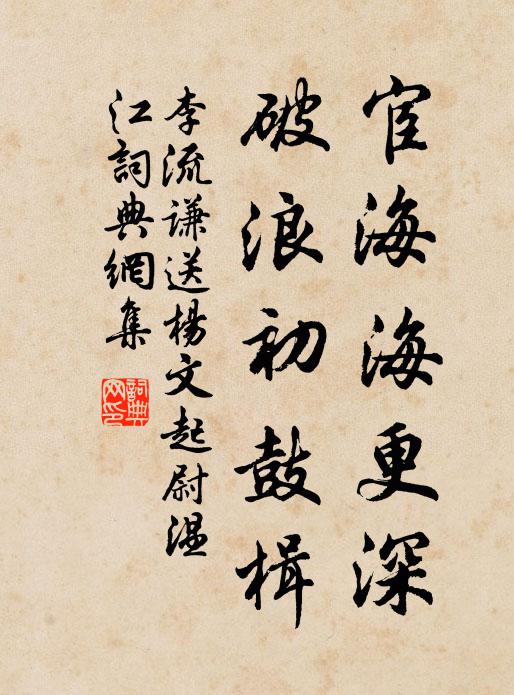 宦海海更深
破浪初鼓楫
李流谦送楊文起尉温
江詞典網集
詞典
网印